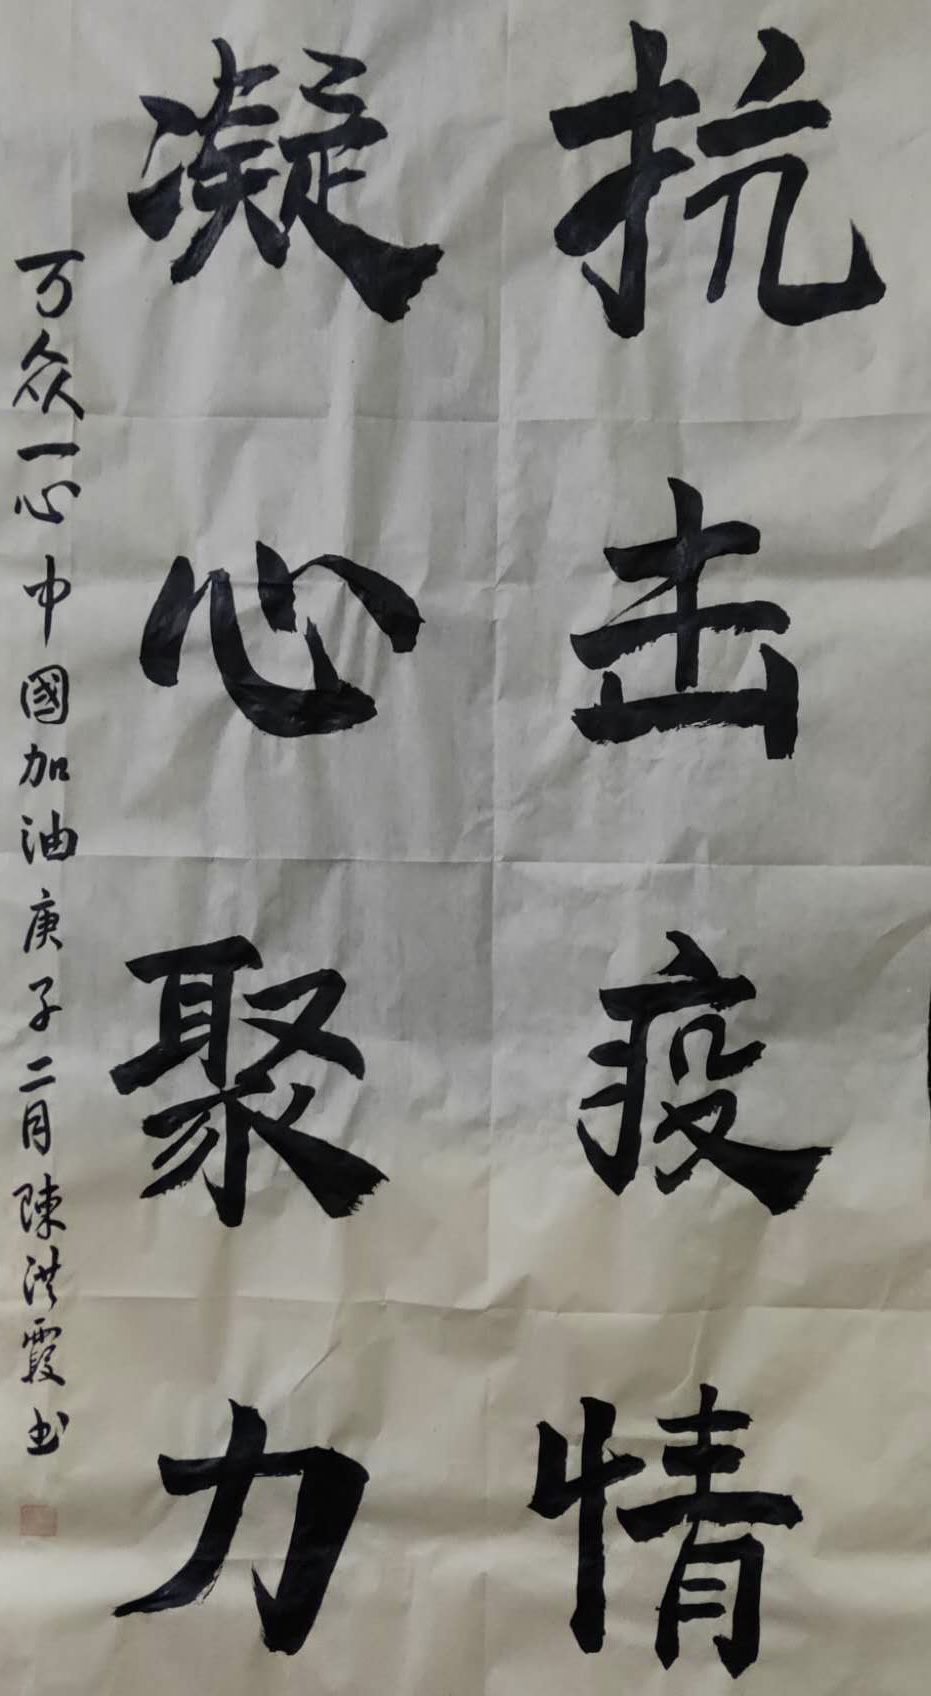 抗击疫情
凝心聚力
万众一心中國加油庚子二月陳洪霞书